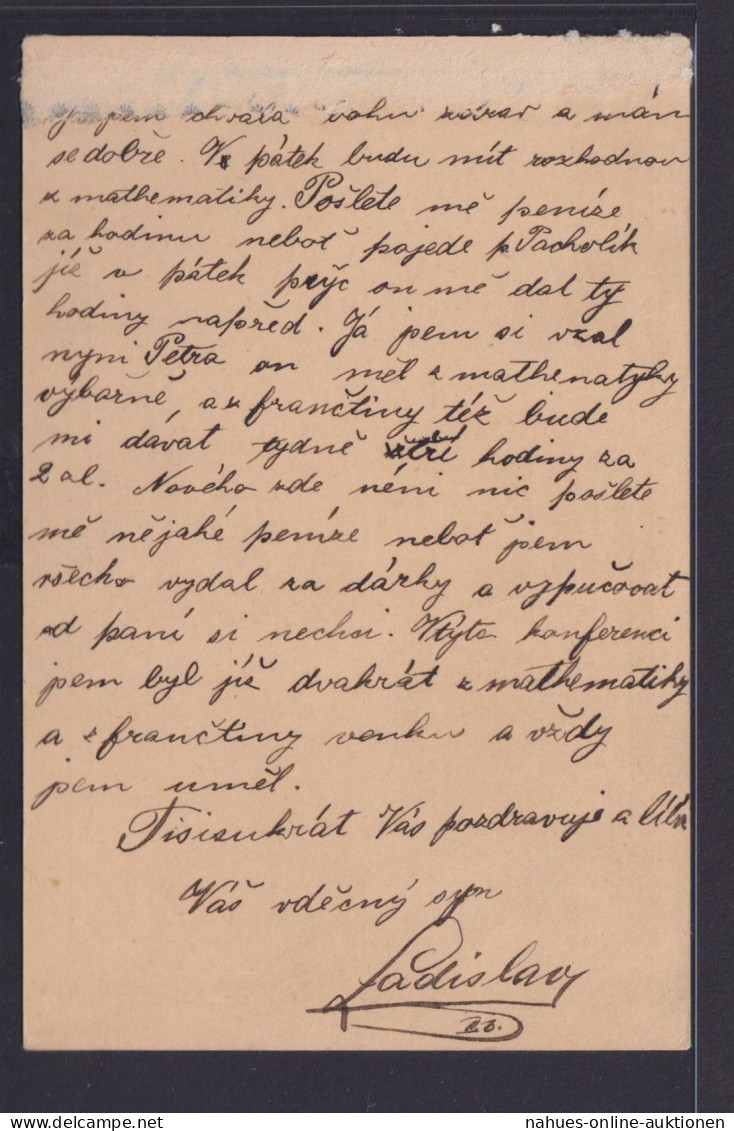 jsem chvála bohu zdráv a mám
se dobře. V pátek budu mít rozhodnou
z mathematiky. Pošlete mě peníze
za hodinu neboť pojede p Pacholík
již v pátek pryč on mě dal ty
hodiny napřed. Já jsem si vzal
nyni Petra on měl z mathenatyky
výbařně, a z frančtiny též bude
mi dávat tydně tři hodiny za
2 al. Nového zde néni nic pošlete
mě nějahé peníze neboť jsem
všecho vydal za dárky a vypučovat
od paní si nechci. Vtýto konferenci
jsem byl již dvakrát z mathematiky
a z frančtiny venku a vždy
jsem uměl.
Tisicukrát Vás pozdravuje a líbá
Váš vděčný syn
Ladislav
nahues-online-auktionen